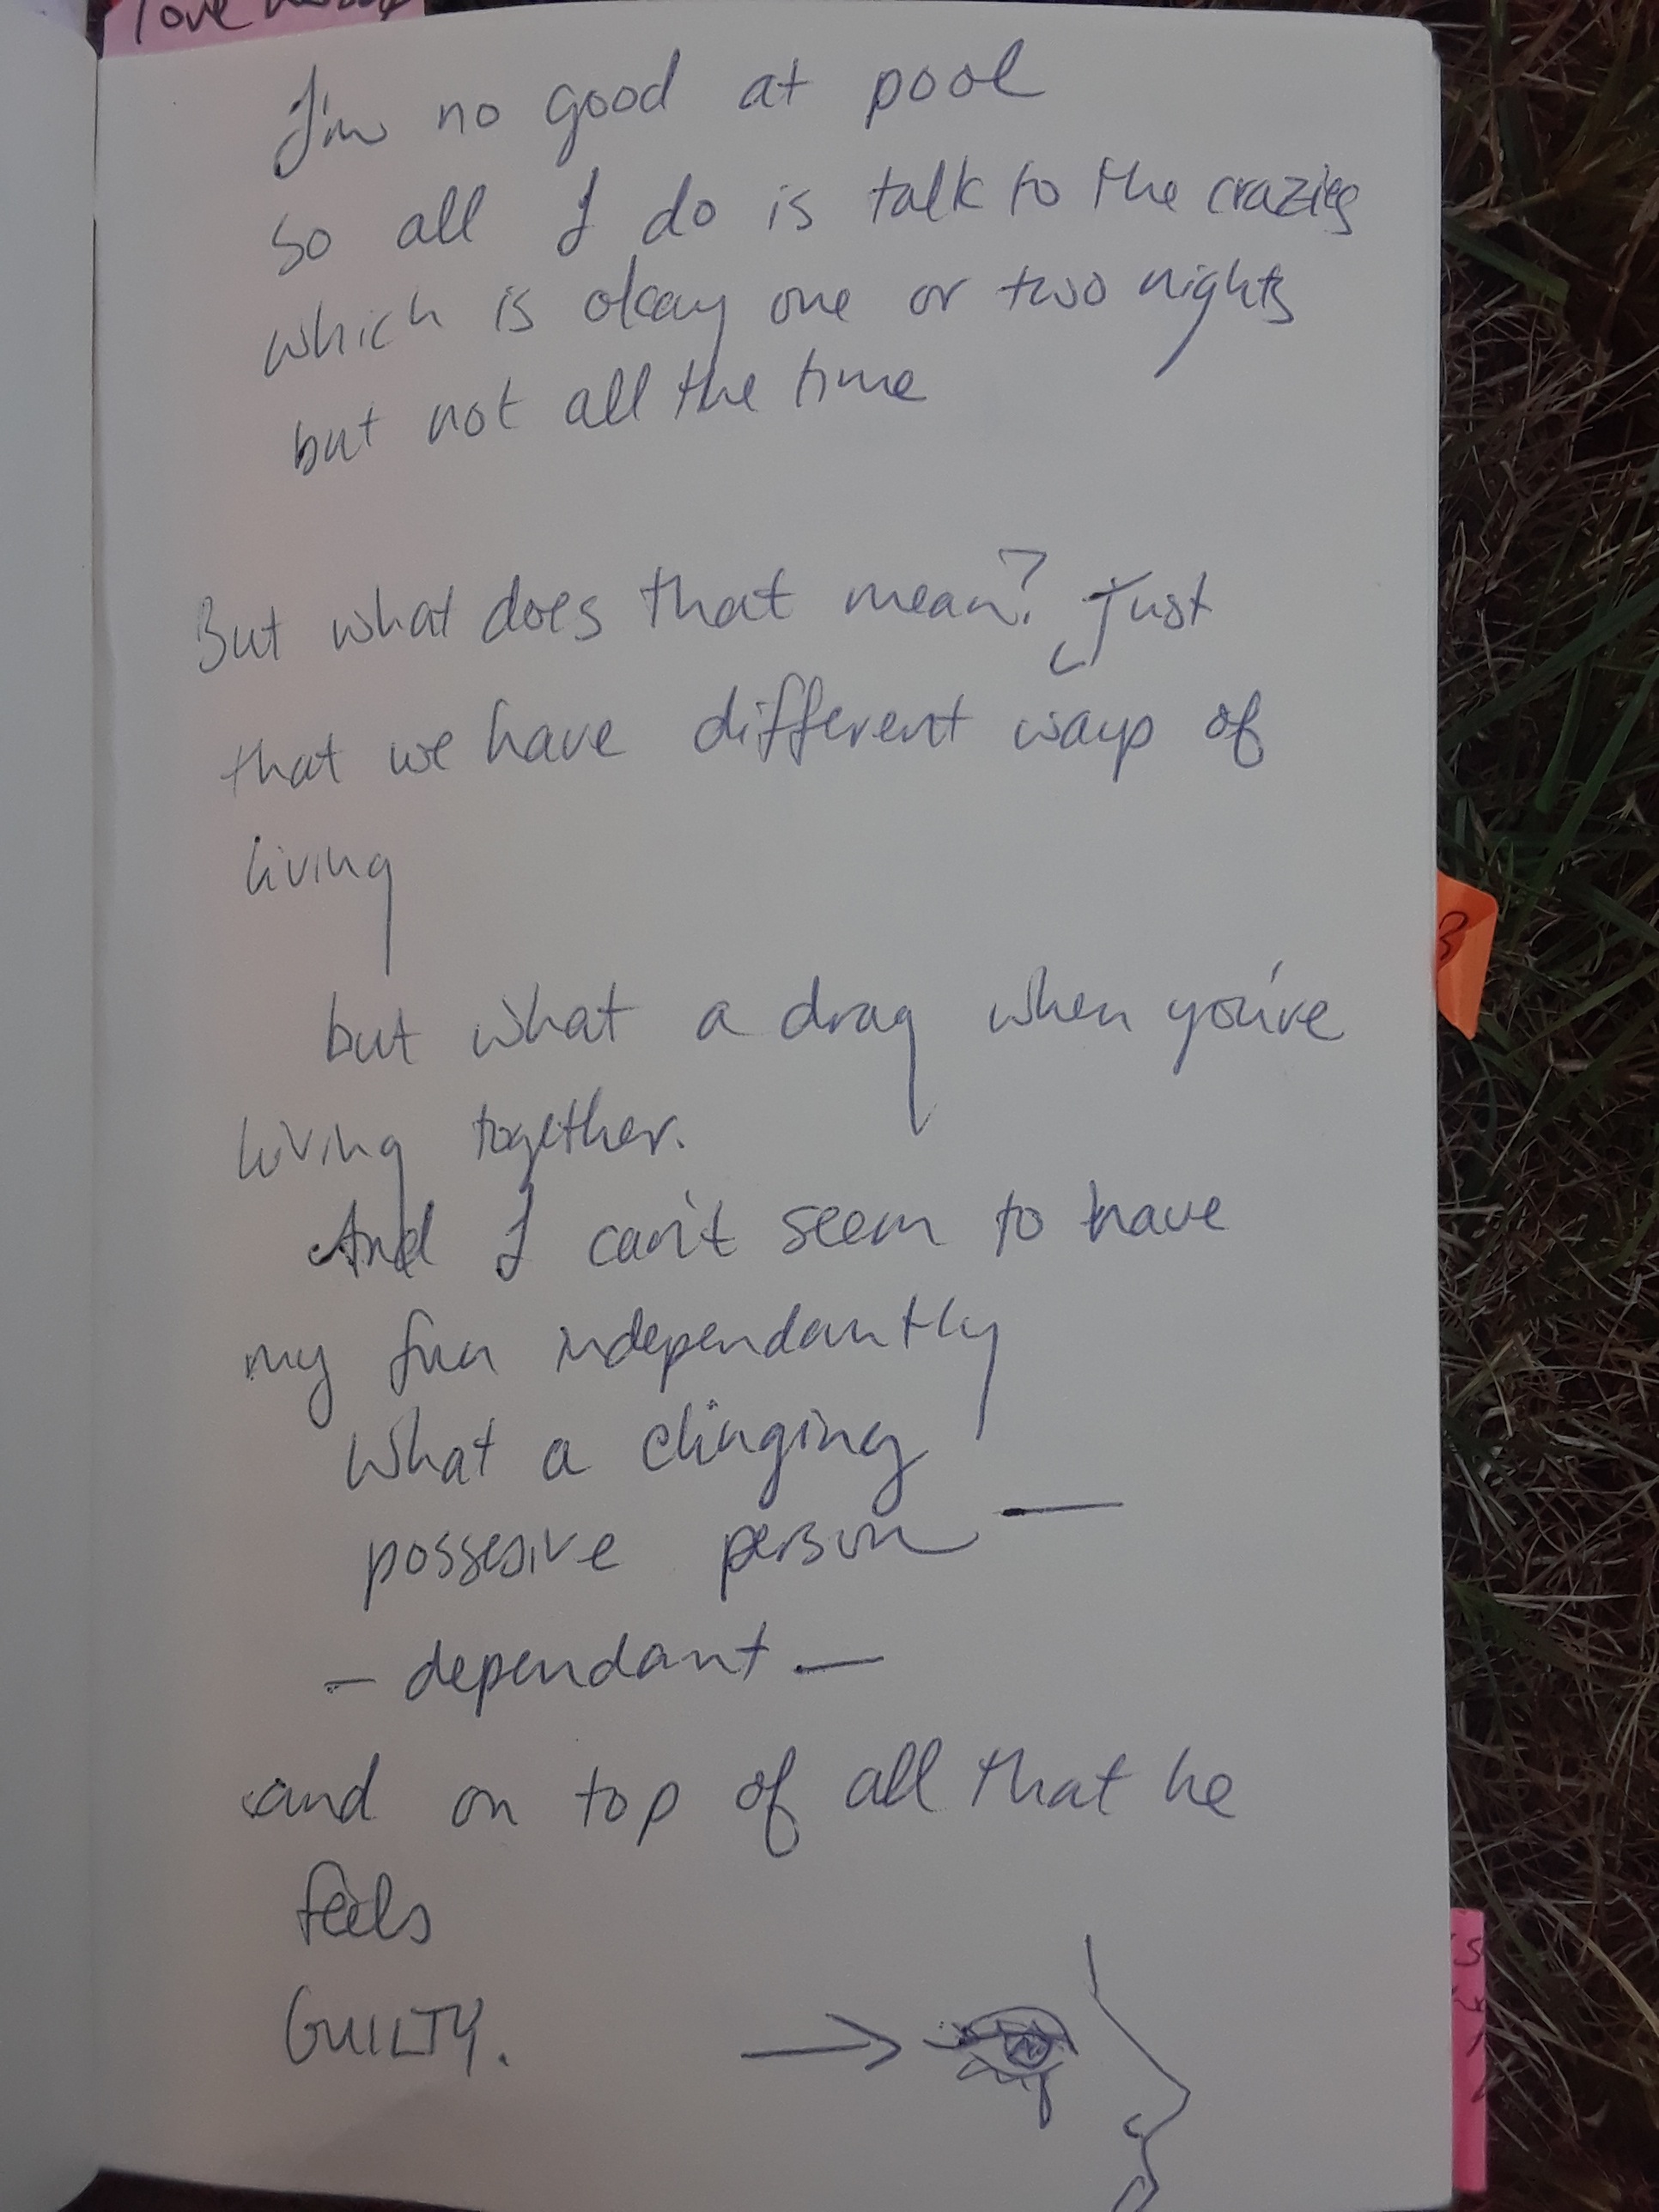 love
I'm no good at pool
so all I do is talk to the crazies
which is okay one or two nights
but not all the time
But what does that mean? Just
that we have different ways of
living
but what a drag when you're
living together.
And I can't seem to have
my fun independantly
What a clinging
possesive person —
— dependant —
and on top of all that he
feels
GUILTY.
3